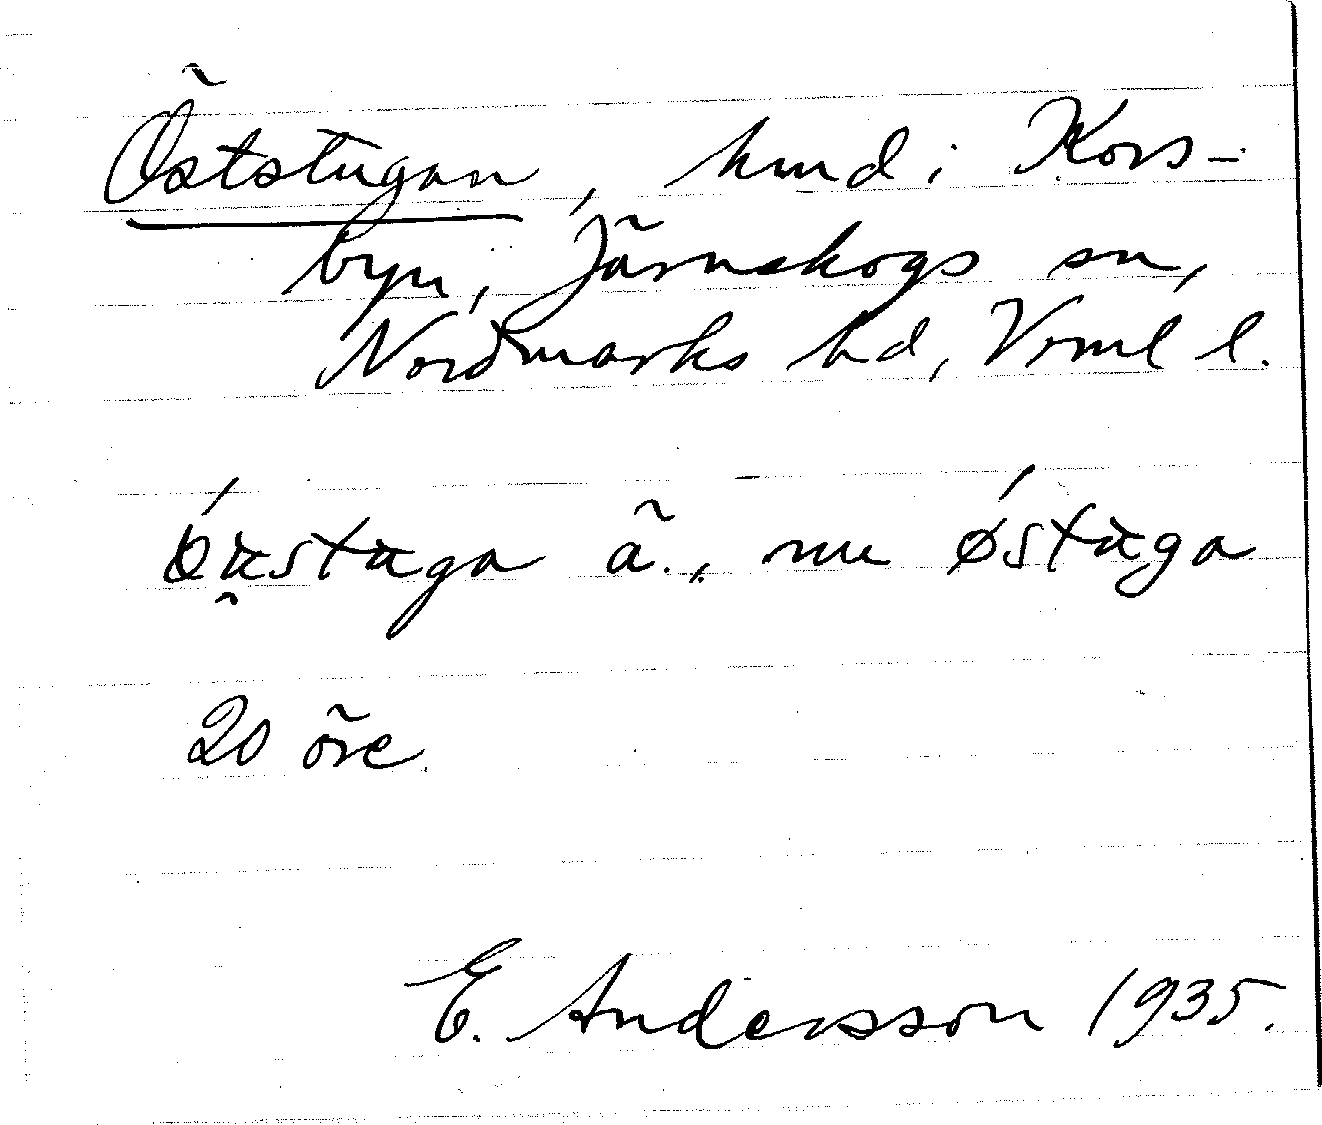 Öststugan, hmd i Kors-
byn, Järnskogs sn,
Nordmarks hd, Verml l.
ä., nu østuga
20 öre.
E. Andersson 1935.